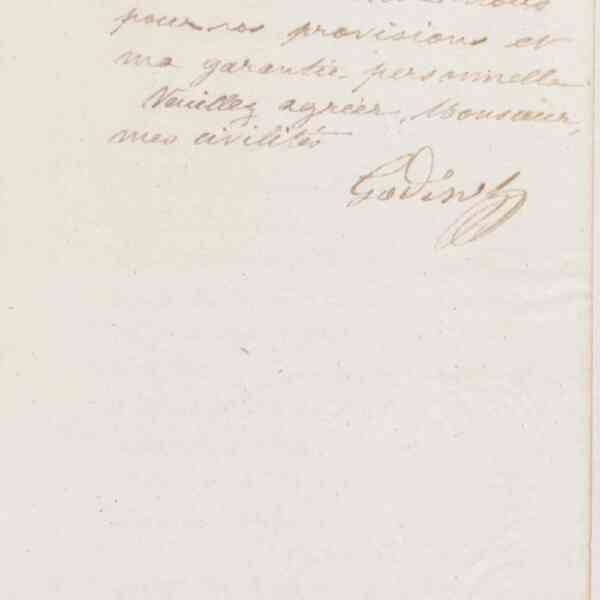 nous
pour nos provisions et
ma garantie personnelle
Veuillez agréer, Monsieur,
mes civilités
Godin